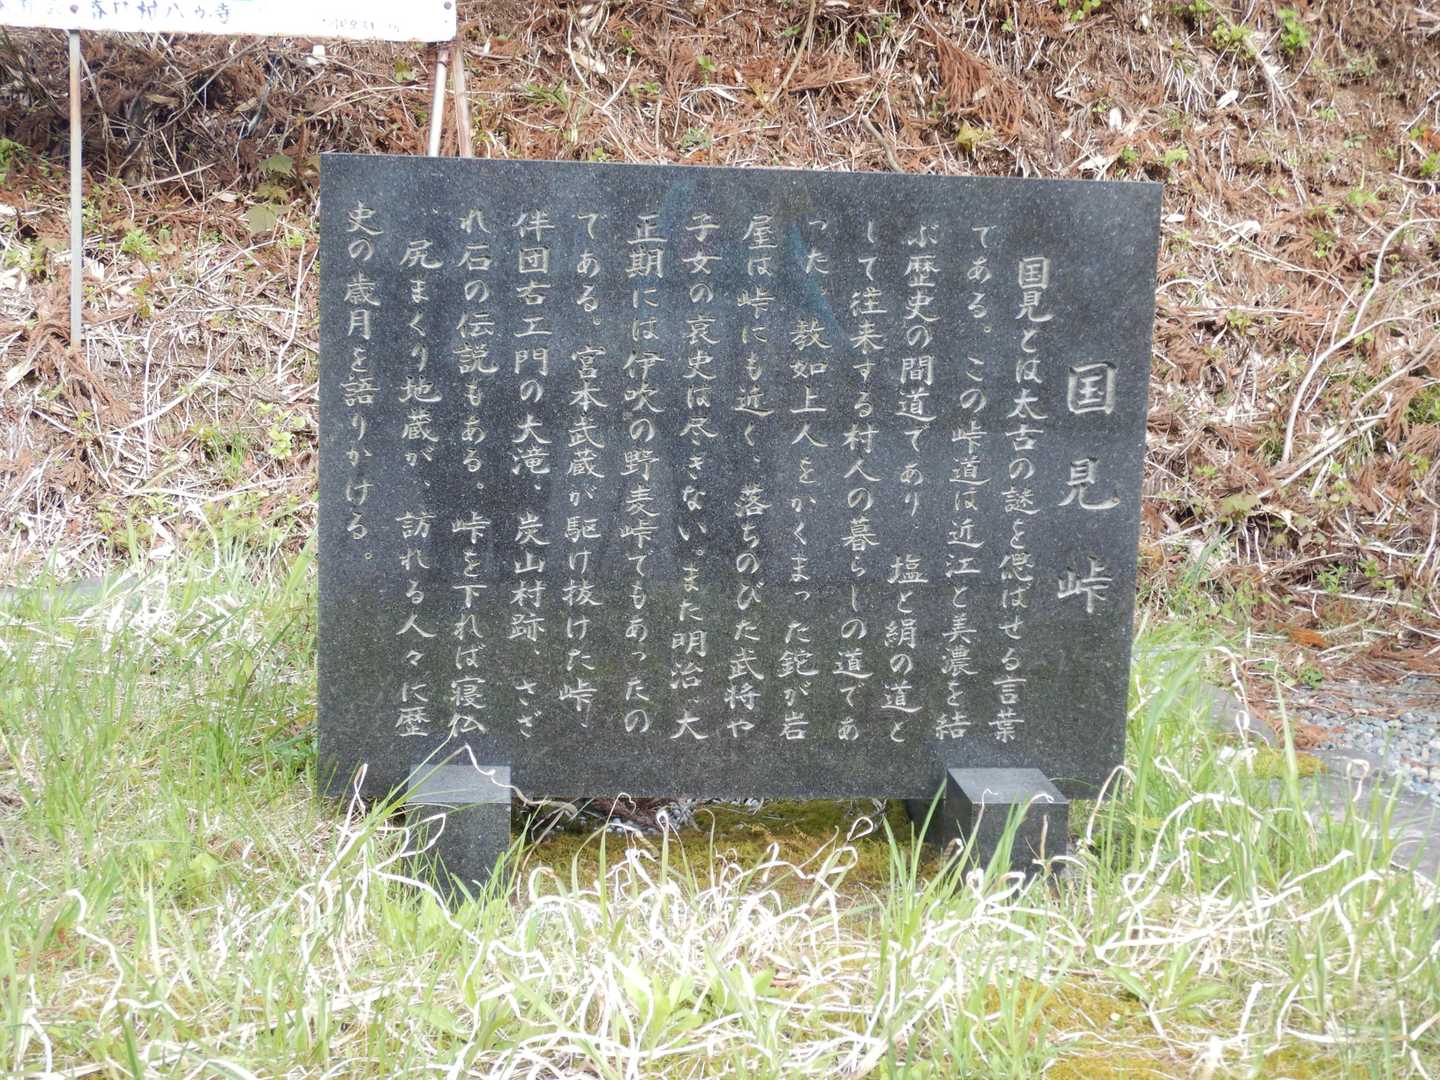 国見峠
国見とは太古の謎を偲ばせる言葉
である。この峠道は近江と美濃を結
ぶ歴史の間道であり 塩と絹の道と
して往来する村人の暮らしの道であ
った 教如上人をかくまった鉈が岩
屋は峠にも近く、落ちのびた武将や
子女の哀史は尽きない。また明治 大
正期には伊吹の野麦峠でもあったの
である。宮本武蔵が駆け抜けた峠
伴団右エ門の大滝、炭山村跡、さざ
れ石の伝説もある。峠を下れば寝仏
、尻まくり地蔵が、訪れる人々に歴
史の歳月を語りかける。
村八ヵ寺